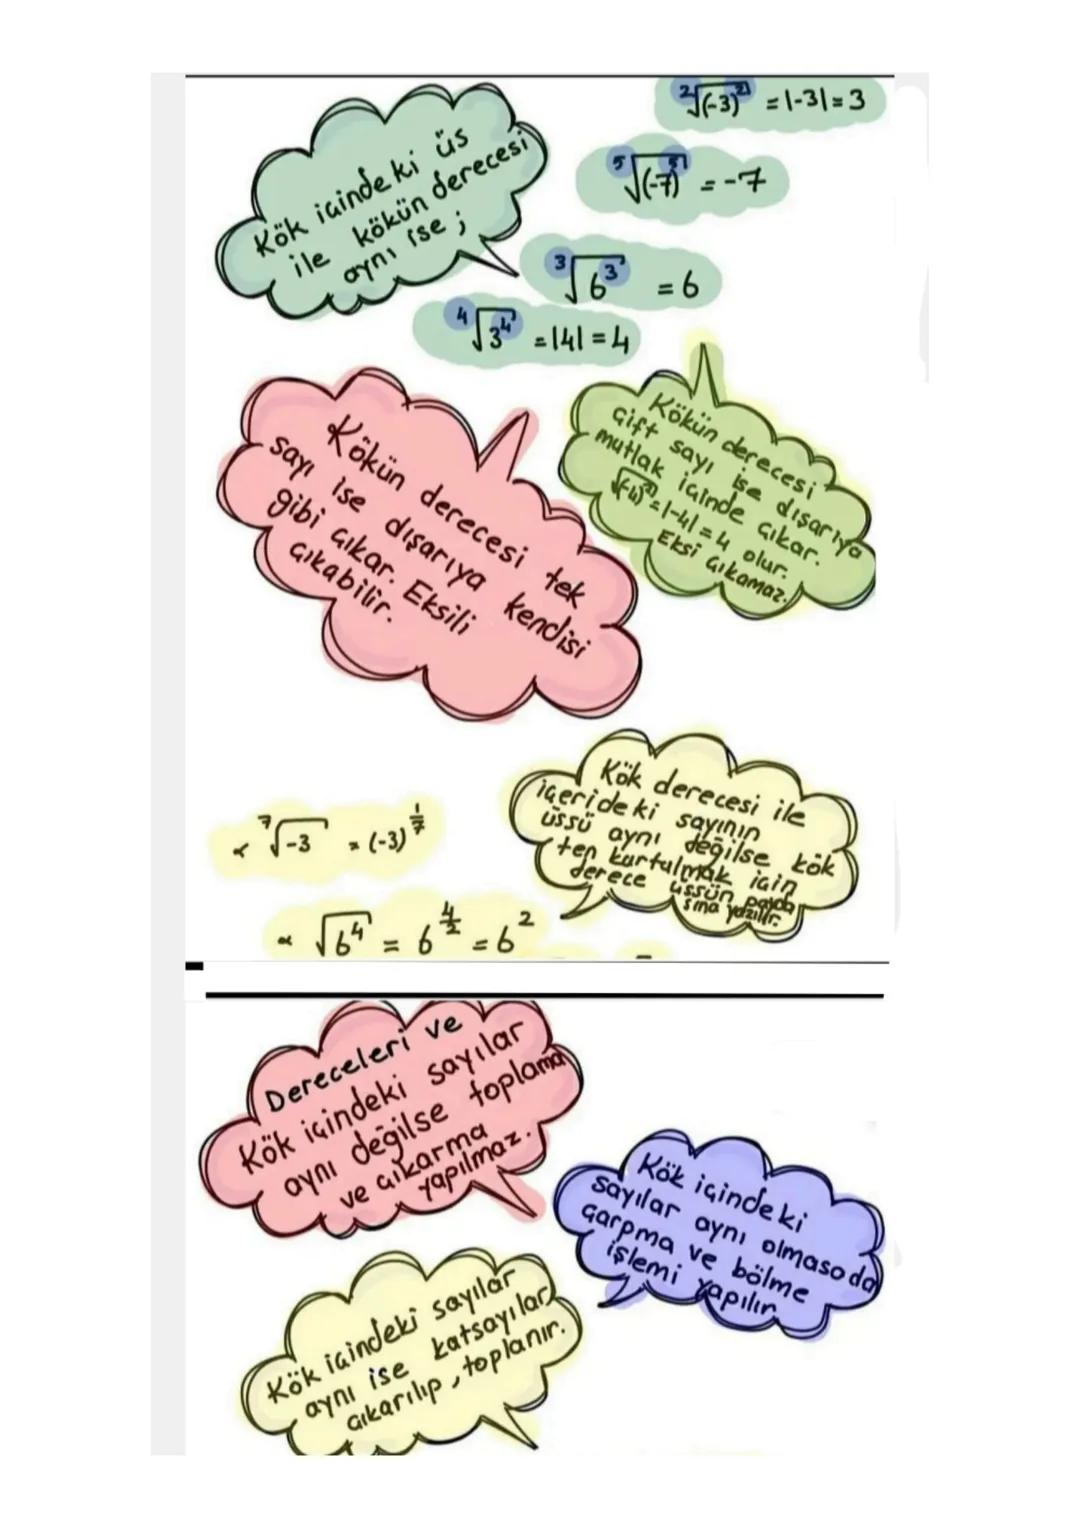 ²√(-3)² = |-3| = 3
Kök içindeki üs
ile kökün derecesi
aynı ise ;
⁵√(-7)⁵ = -7
³√6³ = 6
⁴√3⁴ = |4| = 4
Kökün derecesi
çift sayı ise dışarıya
mutlak içinde çıkar.
√(-4)² = |-4| = 4 olur.
Eksi çıkamaz.
Kökün derecesi tek
sayı ise dışarıya kendisi
gibi çıkar. Eksili
çıkabilir.
Kök derecesi ile
içerideki sayının
üssü aynı değilse kök
ten kurtulmak için
derece üssün payda
sına yazılır.
⁷√-3 = (-3)^(1/7)
√6⁴ = 6^(4/2) = 6²
Dereceleri ve
Kök içindeki sayılar
aynı değilse toplama
ve çıkarma
yapılmaz.
Kök içindeki
sayılar aynı olmasa da
çarpma ve bölme
işlemi yapılır
Kök içindeki sayılar
aynı ise katsayılar
çıkarılıp, toplanır.